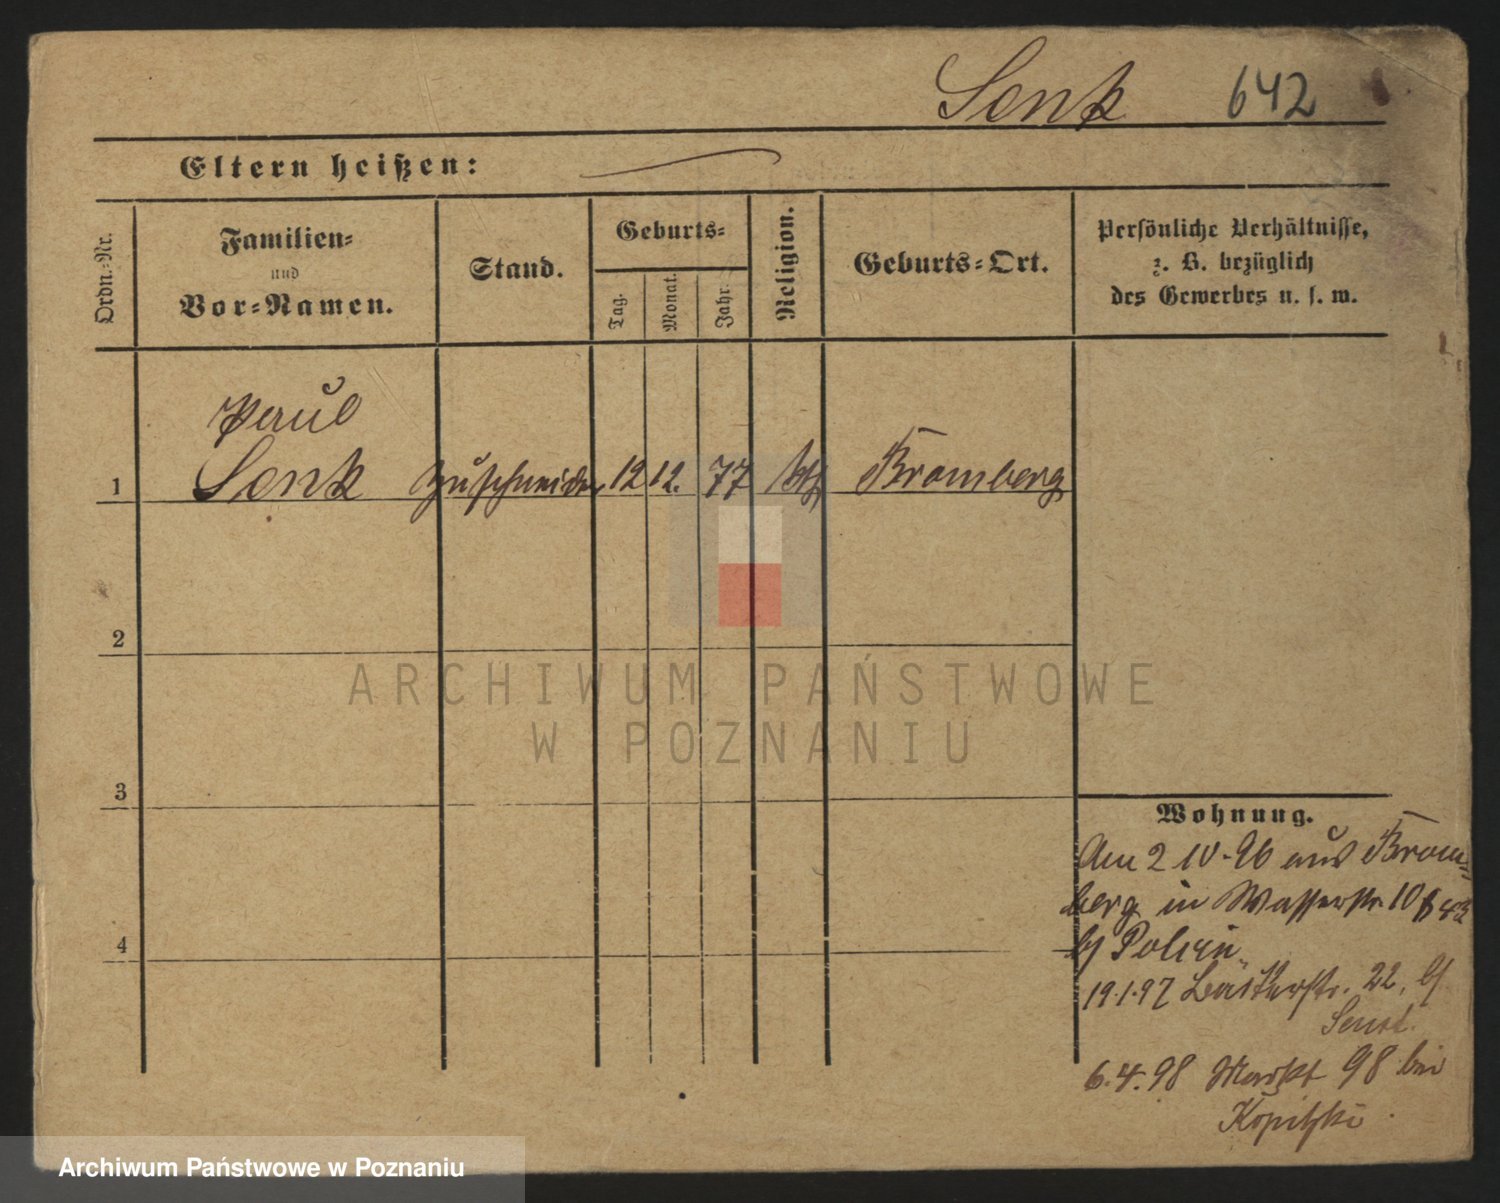 Senk 642
Eltern heißen:
Ordn.-Nr.
Familien-
und
Vor-Namen.
Stand.
Geburts-
Tag.
Monat.
Jahr.
Religion.
Geburts-Ort.
Persönliche Verhältnisse,
z. B. bezüglich
des Gewerbes u. s. w.
Paul
1 Senk Zuschneider 12 12. 77 kth Bromberg
2
3
4
Wohnung.
Am 2 10-96 aus Brom-
berg in Wasserstr. 10
b/
19.1.97 Bäckerstr. 22, b/
6.4.98 Markt 98 bei
Kopitzki.
ARCHIWUM PAŃSTWOWE
W POZNANIU
Archiwum Państwowe w Poznaniu